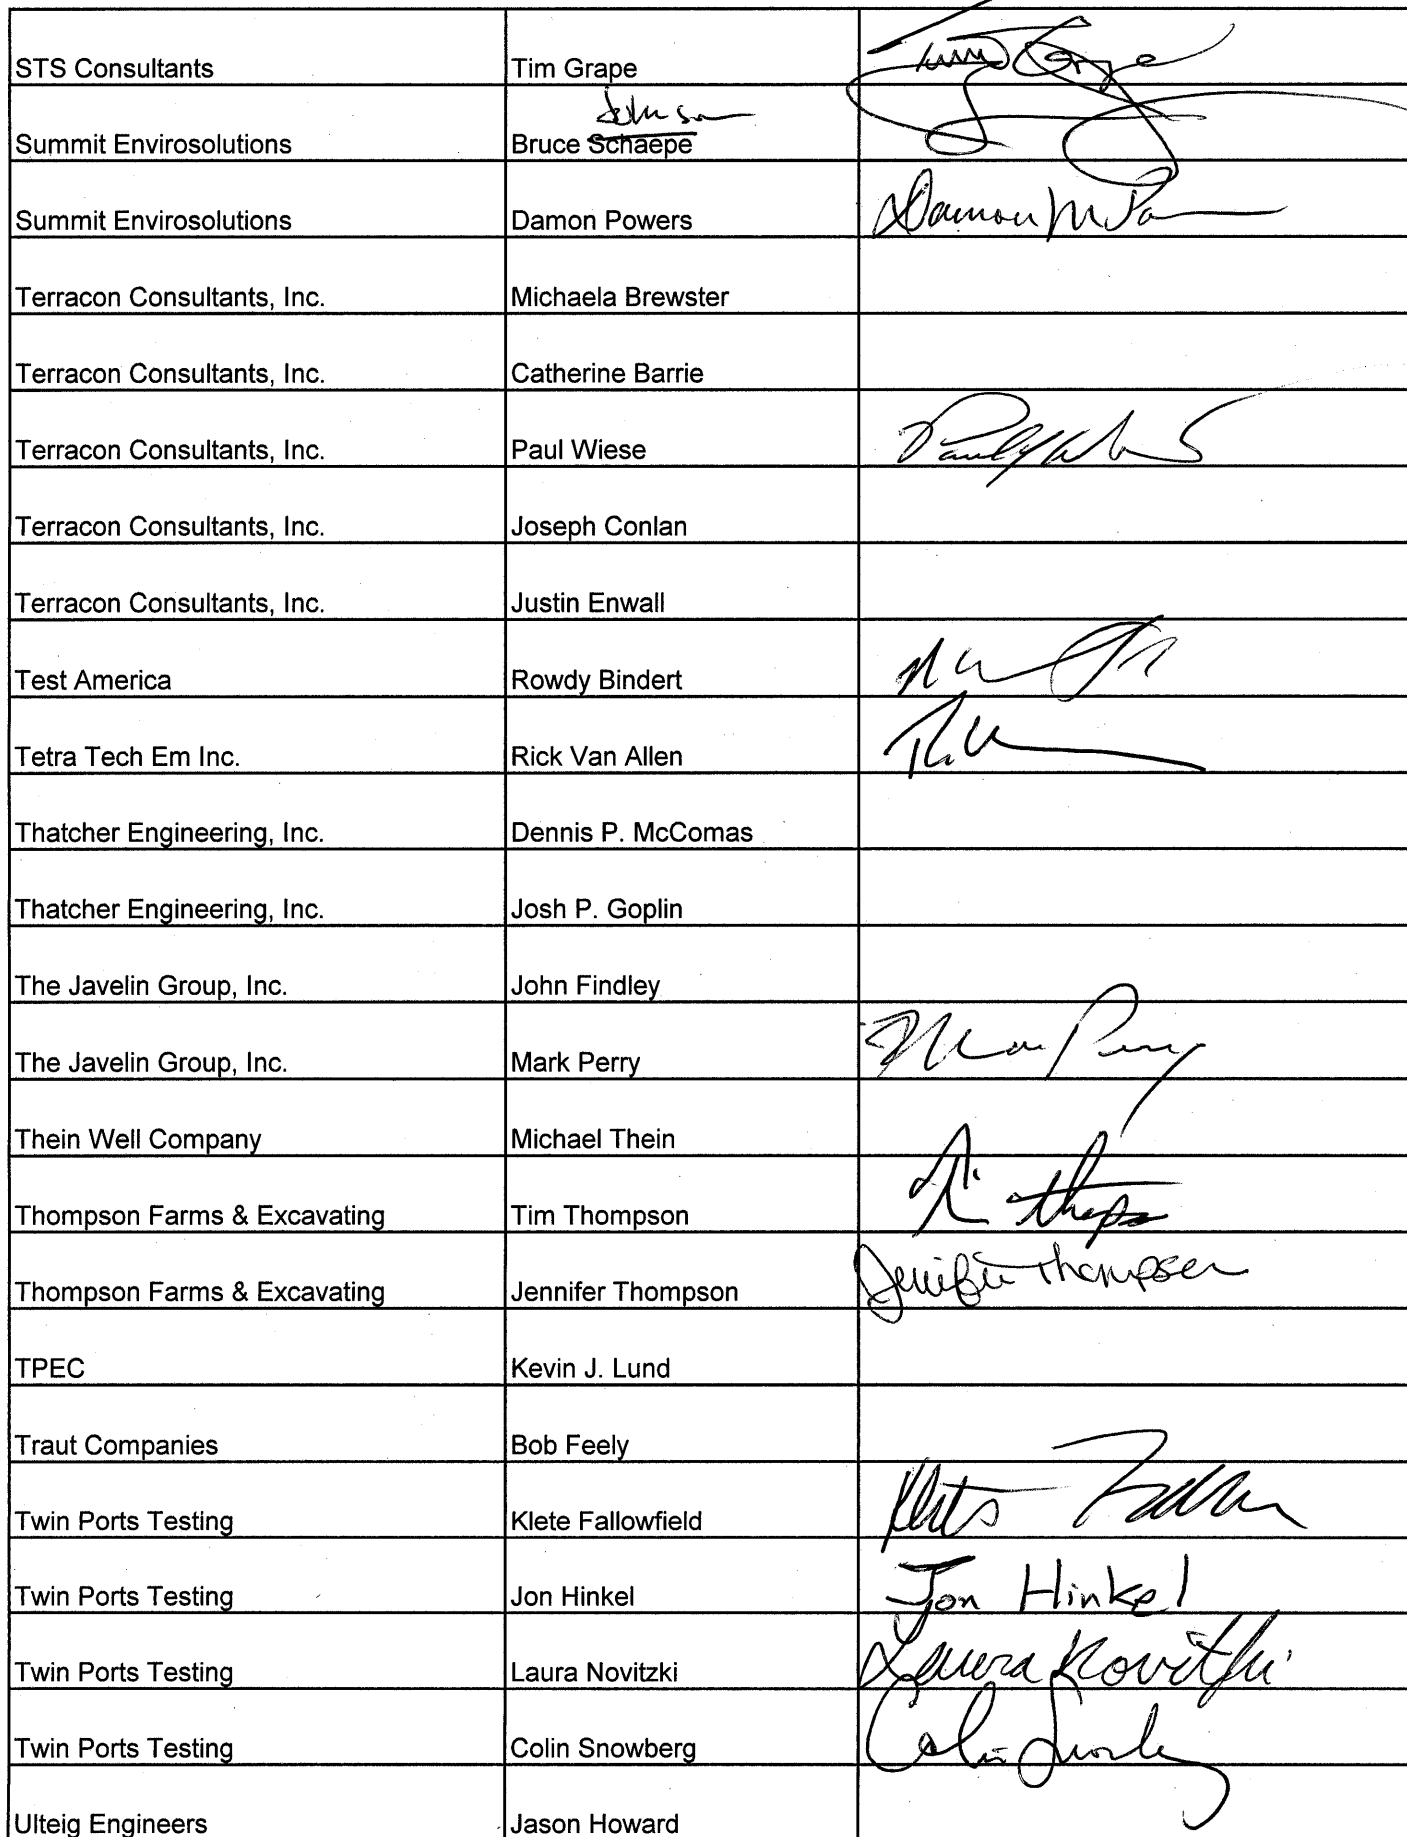 STS Consultants Tim Grape
Johnson
Summit Envirosolutions Bruce Schaepe
Summit Envirosolutions Damon Powers Damon M Po
Terracon Consultants, Inc. Michaela Brewster
Terracon Consultants, Inc. Catherine Barrie
Terracon Consultants, Inc. Paul Wiese Paul
Terracon Consultants, Inc. Joseph Conlan
Terracon Consultants, Inc. Justin Enwall
Test America Rowdy Bindert
Tetra Tech Em Inc. Rick Van Allen
Thatcher Engineering, Inc. Dennis P. McComas
Thatcher Engineering, Inc. Josh P. Goplin
The Javelin Group, Inc. John Findley
The Javelin Group, Inc. Mark Perry Perry
Thein Well Company Michael Thein
Thompson Farms & Excavating Tim Thompson
Thompson Farms & Excavating Jennifer Thompson Jennifer Thompson
TPEC Kevin J. Lund
Traut Companies Bob Feely
Twin Ports Testing Klete Fallowfield
Twin Ports Testing Jon Hinkel Jon Hinkel
Twin Ports Testing Laura Novitzki Laura Novitzki
Twin Ports Testing Colin Snowberg Colin
Ulteig Engineers Jason Howard